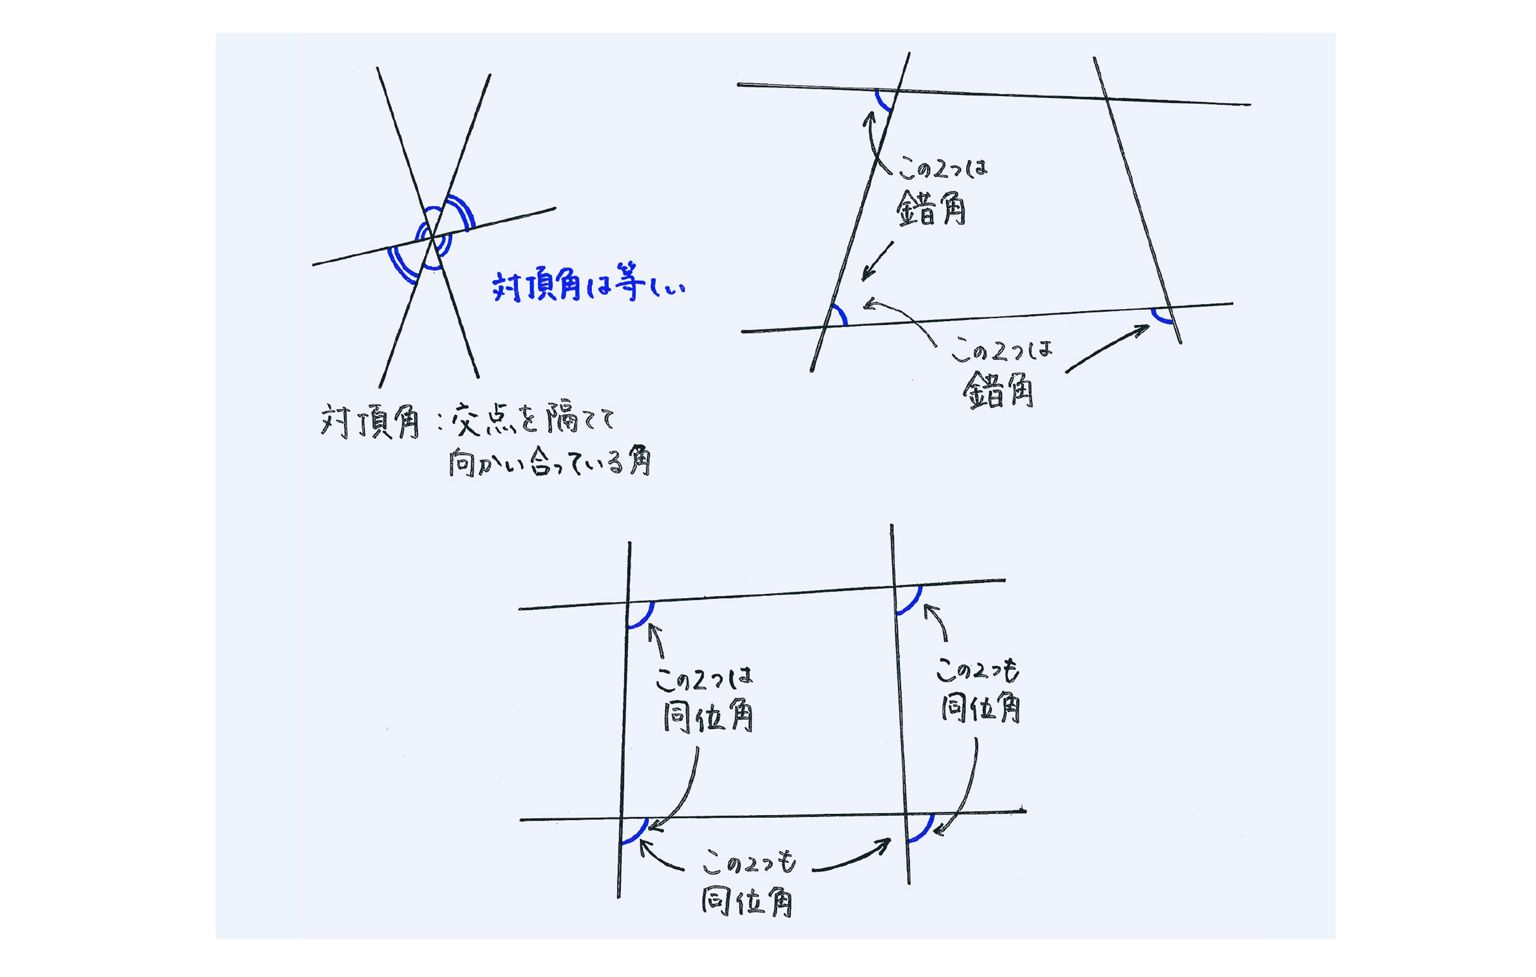 対頂角は等しい
対頂角:交点を隔てて
向かい合っている角
この2つは
錯角
この2つは
錯角
この2つは
同位角
この2つも
同位角
この2つも
同位角